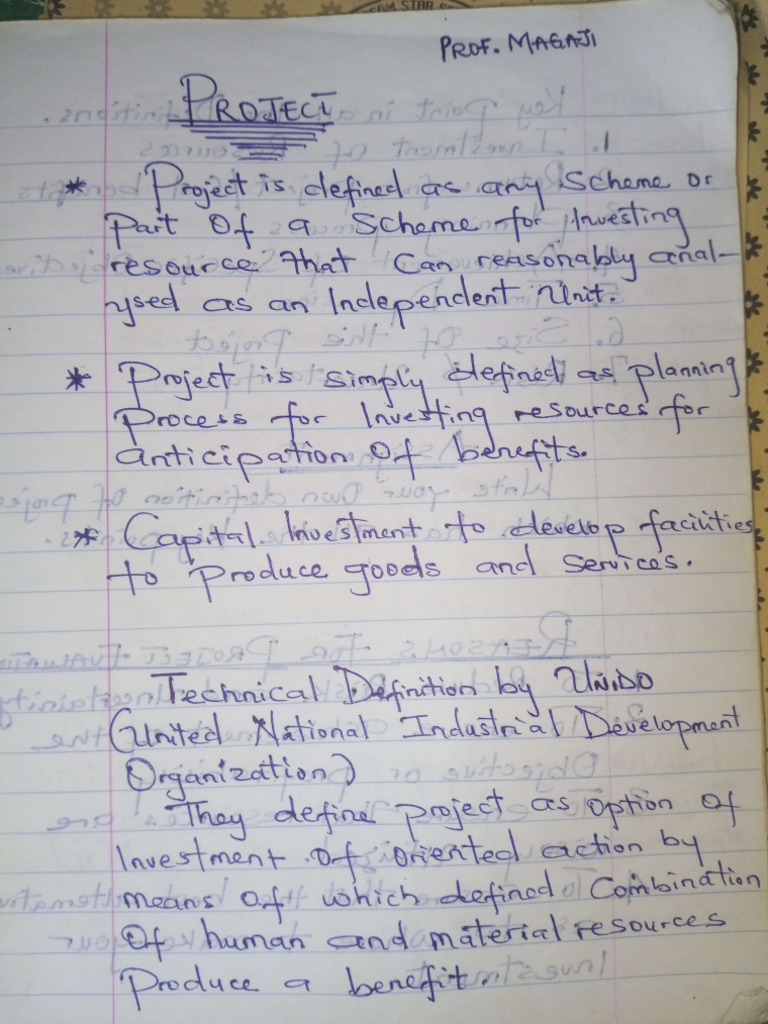 PROF. MAGAJI
PROJECT
* Project is defined as any Scheme or
Part Of a Scheme for Investing
resource that Can reasonably anal-
ysed as an Independent Unit.
* Project is simply defined as planning
Process for Investing resources for
anticipation Of benefits.
* Capital Investment to develop facilities
to Produce goods and services.
Technical Definition by UNIDO
(United National Industrial Development
Organization)
They define project as option of
Investment of oriented action by
means of which defined Combination
Of human and material resources
Produce a benefit.